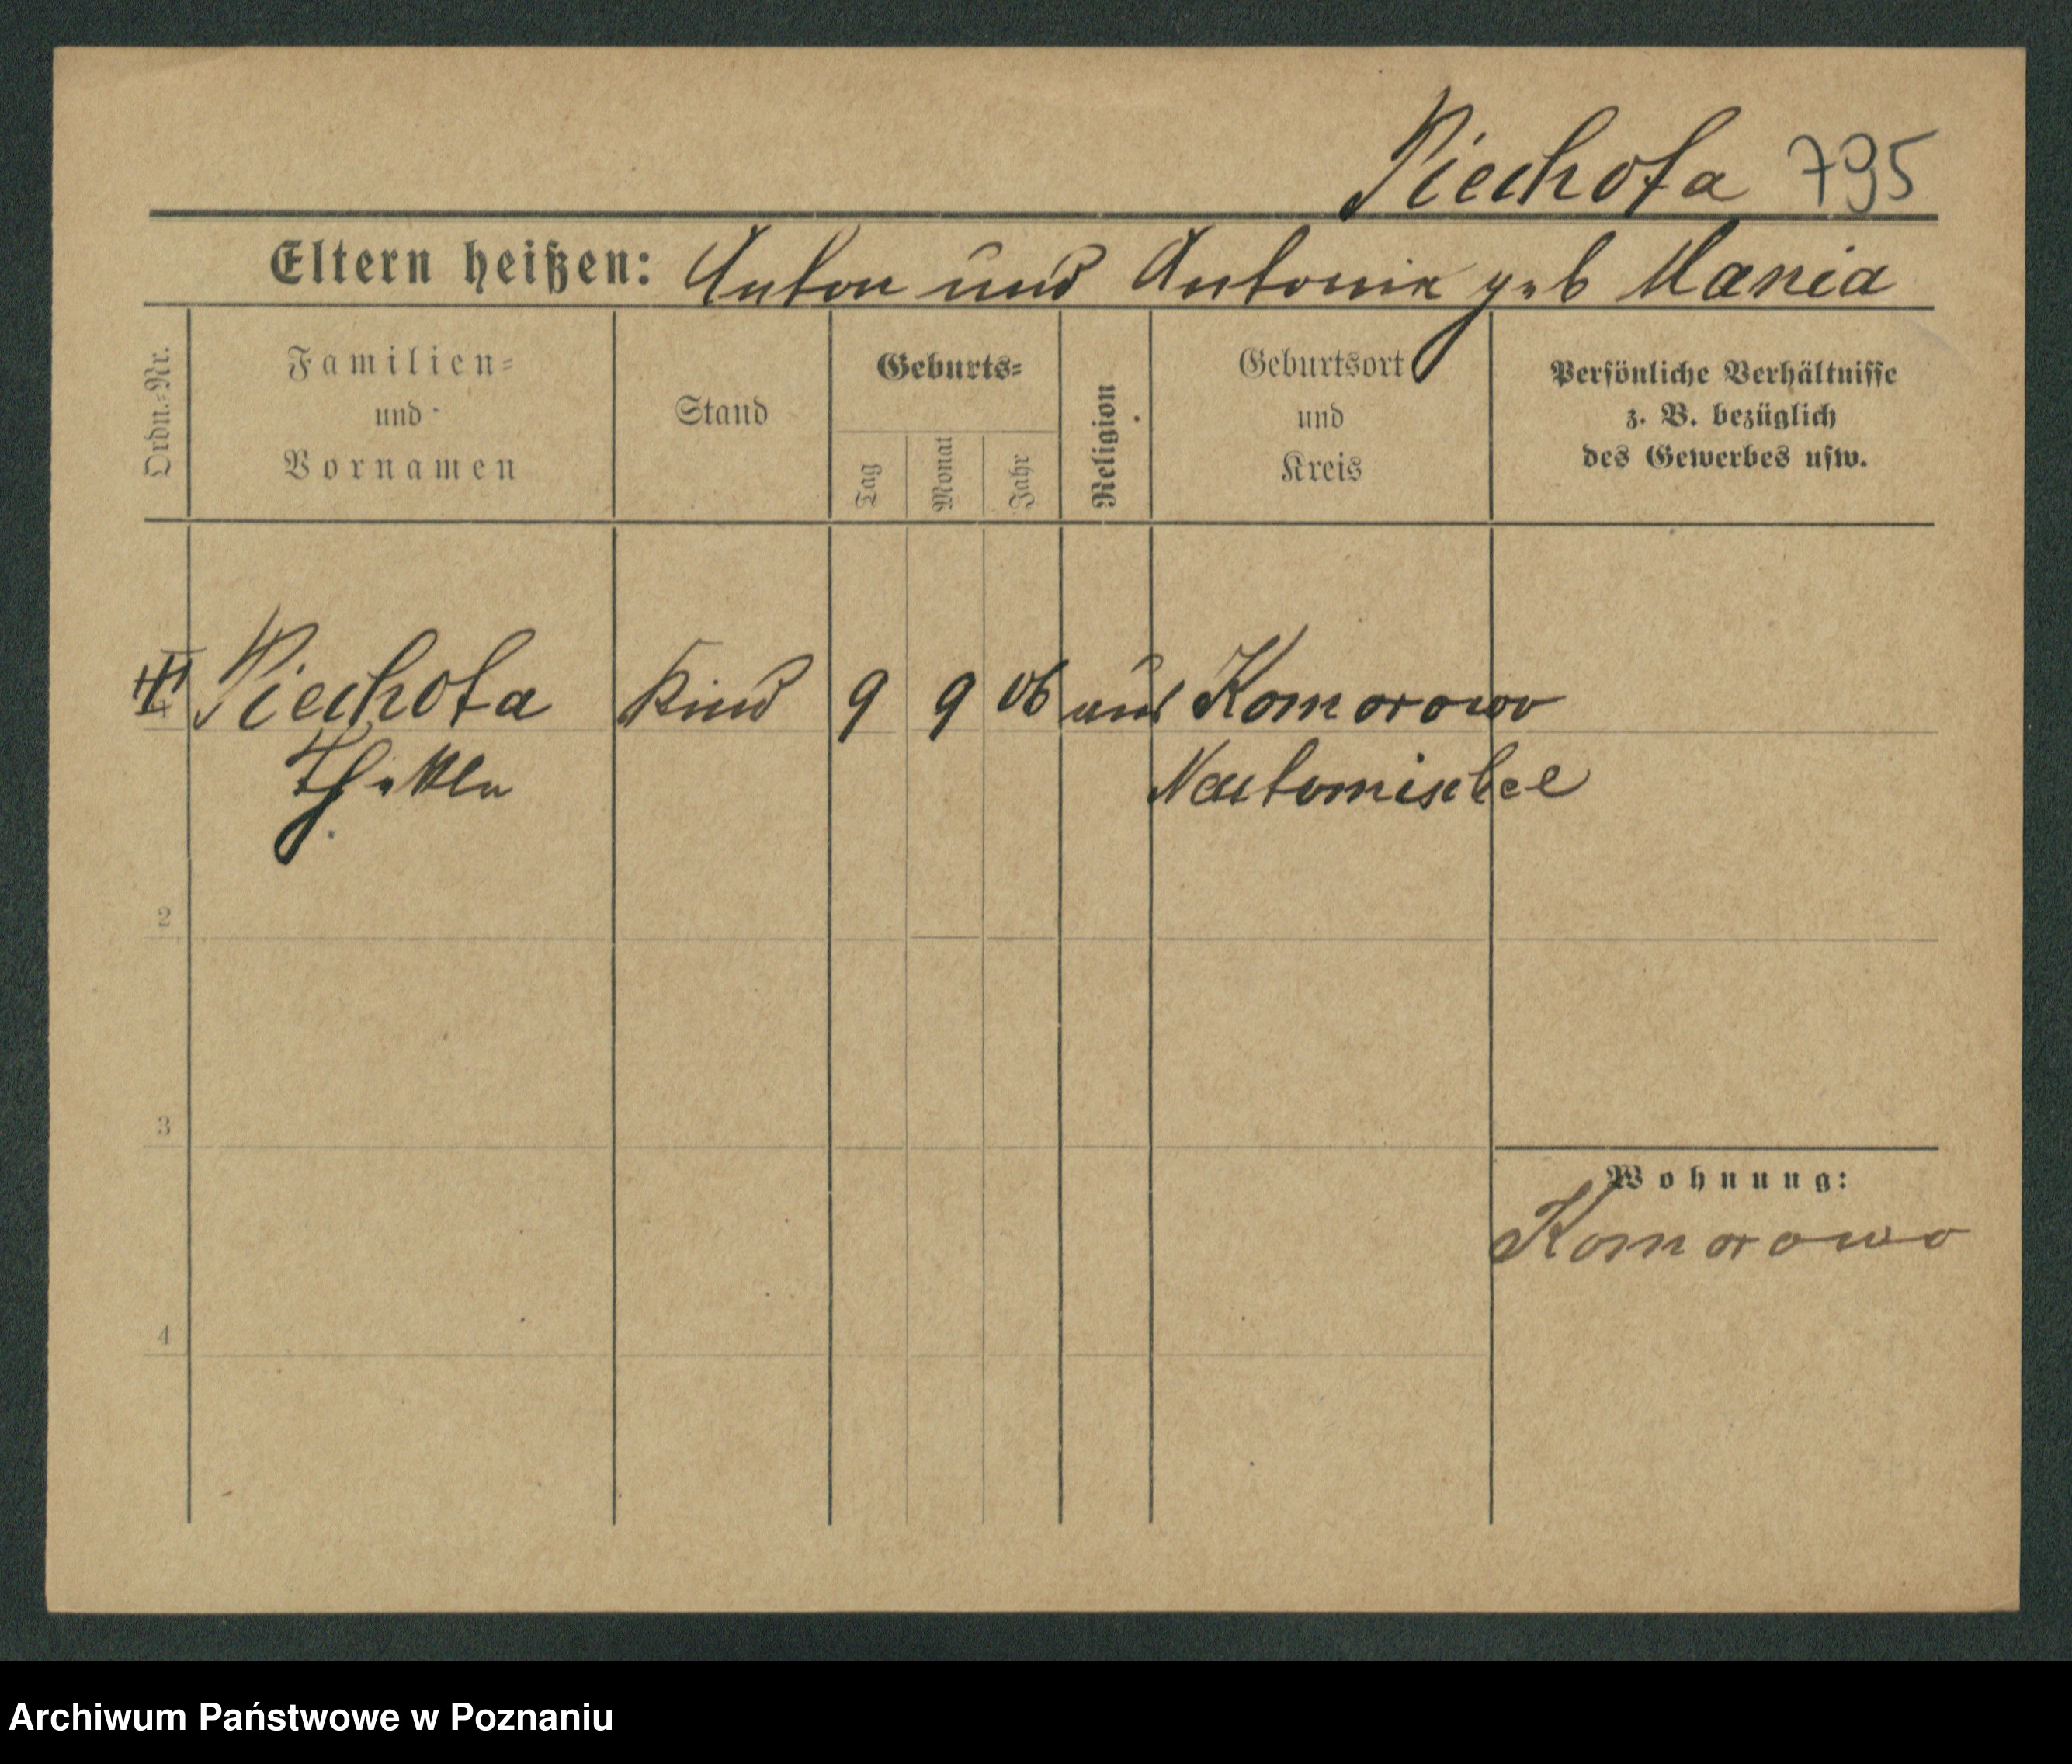 Piechota 795
Eltern heißen: Anton und Antonia geb Mania
Ordn.-Nr.
Familien-
und
Vornamen
Stand
Geburts-
Tag
Monat
Jahr
Religion
Geburtsort
und
Kreis
Persönliche Verhältnisse
z. B. bezüglich
des Gewerbes usw.
Piechota Kind 9 9 06 Komorowo
Neutomischel
2
3
Wohnung:
Komorowo
4
Archiwum Państwowe w Poznaniu